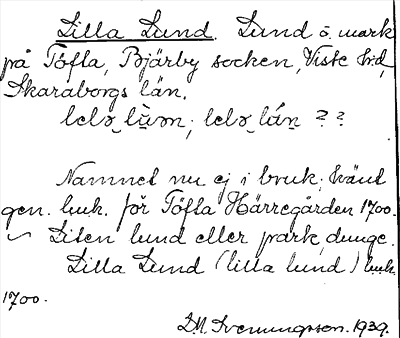 Lilla Lund. Lund o. mark
på Töfla, Bjärby socken, Viste hd,
Skaraborgs län.
Namnet nu ej i bruk; känt
gen. huk. för Töfla Härregården 1700.
~ Liten lund eller park, dunge.
Lilla Lund (lilla lund) huk.
1700.
D.M. Svenungsson. 1939.